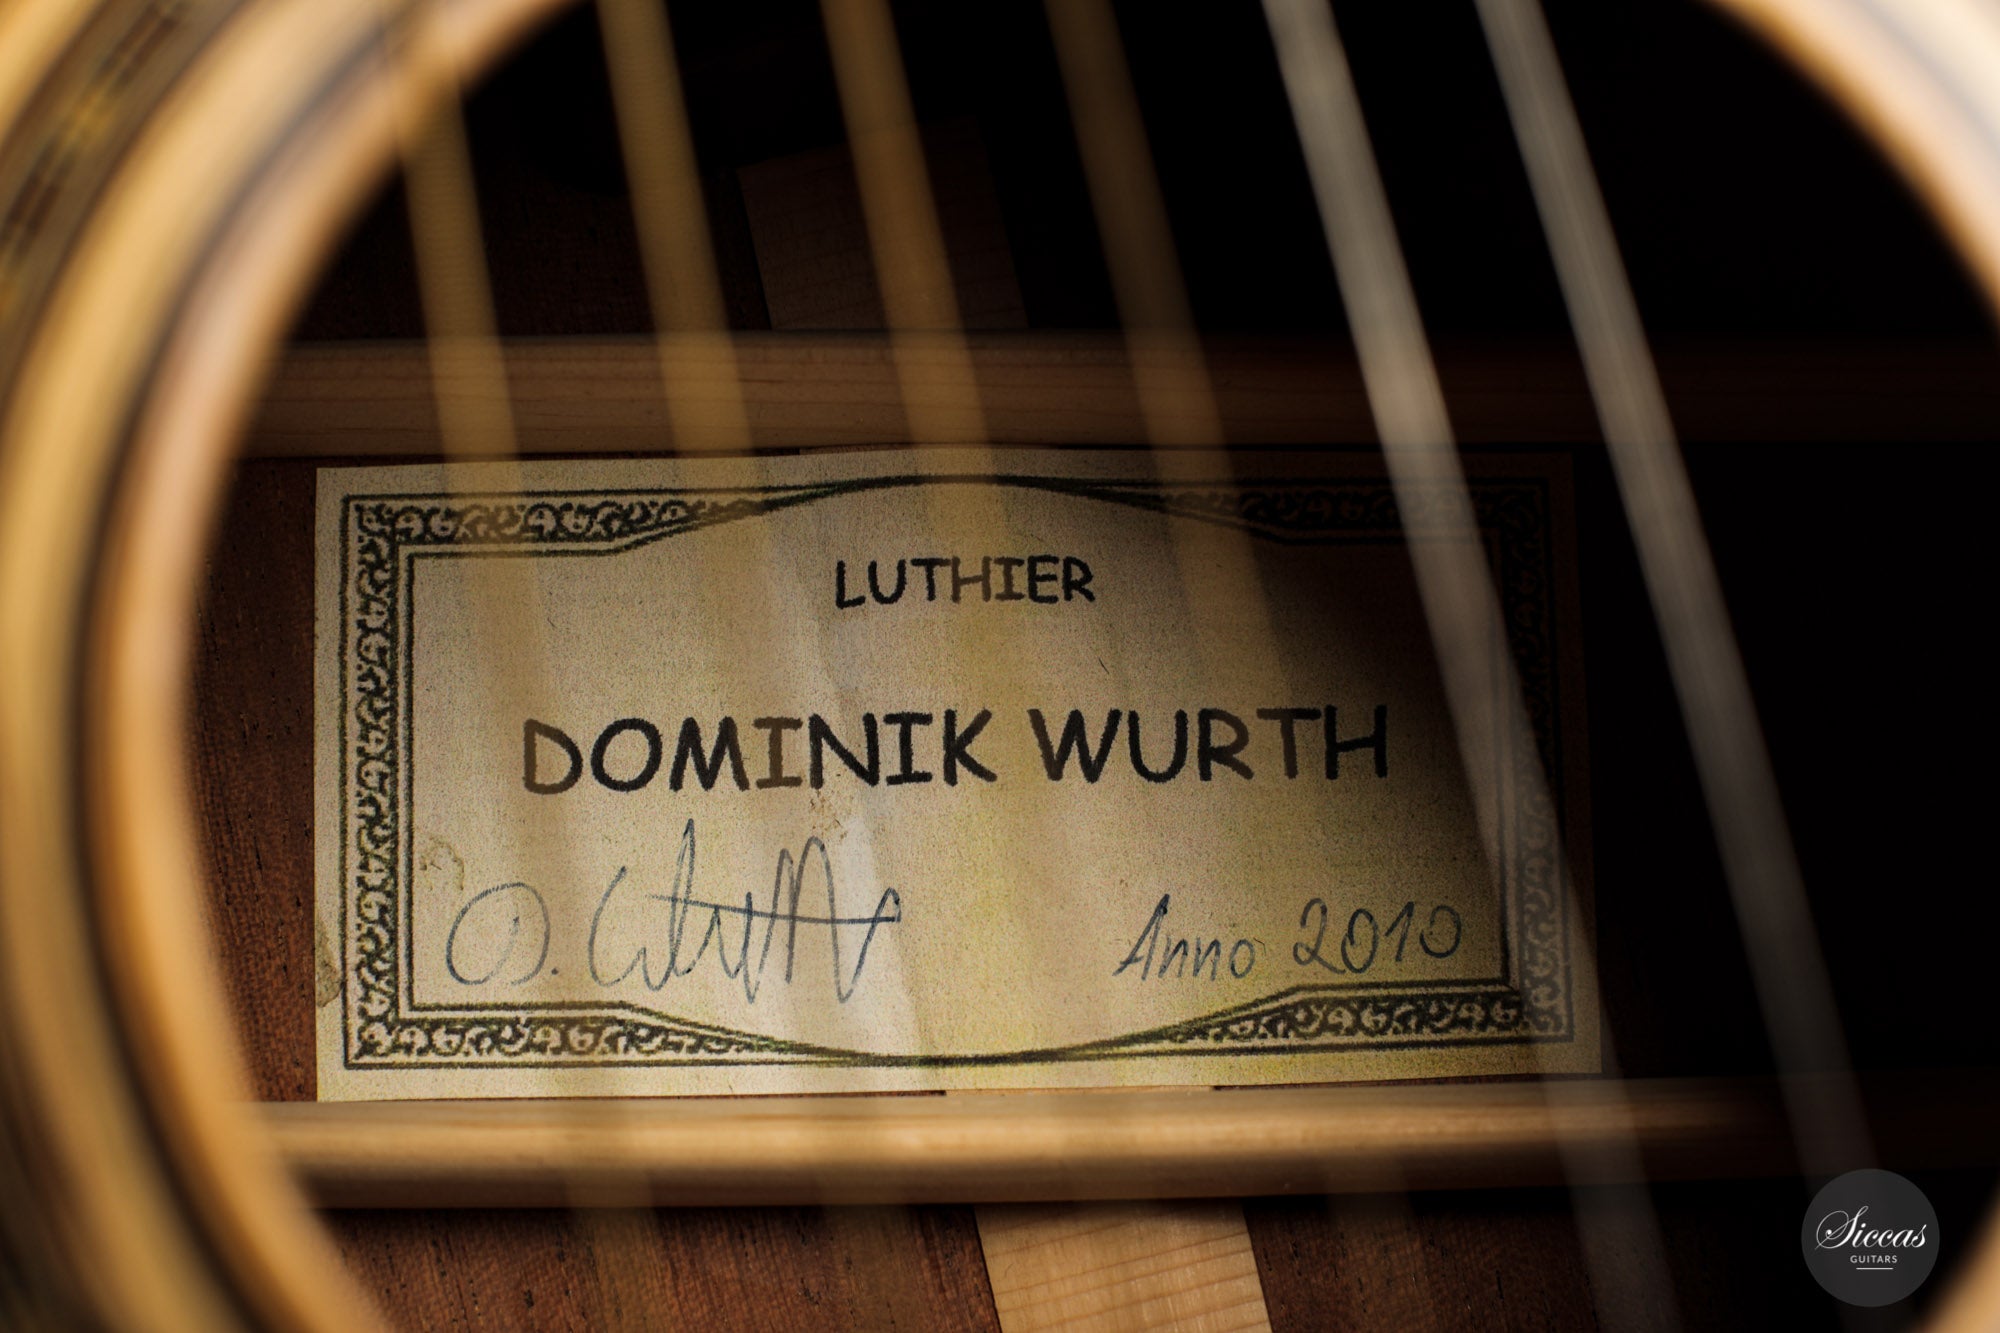 LUTHIER
DOMINIK WURTH
D. Wurth Anno 2010
Siccas
GUITARS